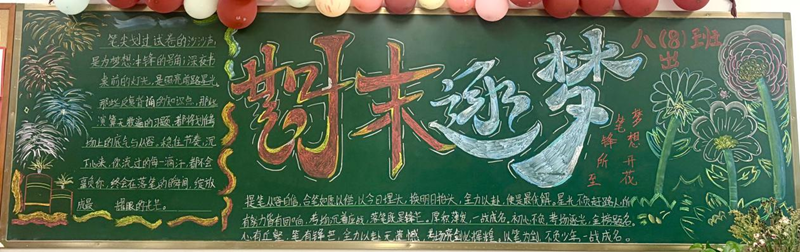 笔尖划过试卷的沙沙声
是为梦想冲锋的号角；深夜书
桌前的灯光，是照亮前路星光
那些反复背诵的知识点，那些
演算无数遍的习题，都将列作考
场上的底气与从容，稳住节奏，沉
下心来，你流过的每一滴汗，都会
变成你，终会在落笔的瞬间，绽放
成最耀眼的光芒。
期末逐梦
八（8）班
出
梦想开花
笔锋所至
提笔从容自信，合笔如愿以偿，以今日埋头，换明日抬头，全力以赴，便是最优解。星光不负赶路人，你
有努力皆有回响，考场沉着应战，落笔成就锋芒。厚积薄发，一战成名，初心不负，考场逐光，金榜题名。
心有丘壑，笔有锋芒，全力以赴无遗憾，以笔为剑，不负少年，一战成名。